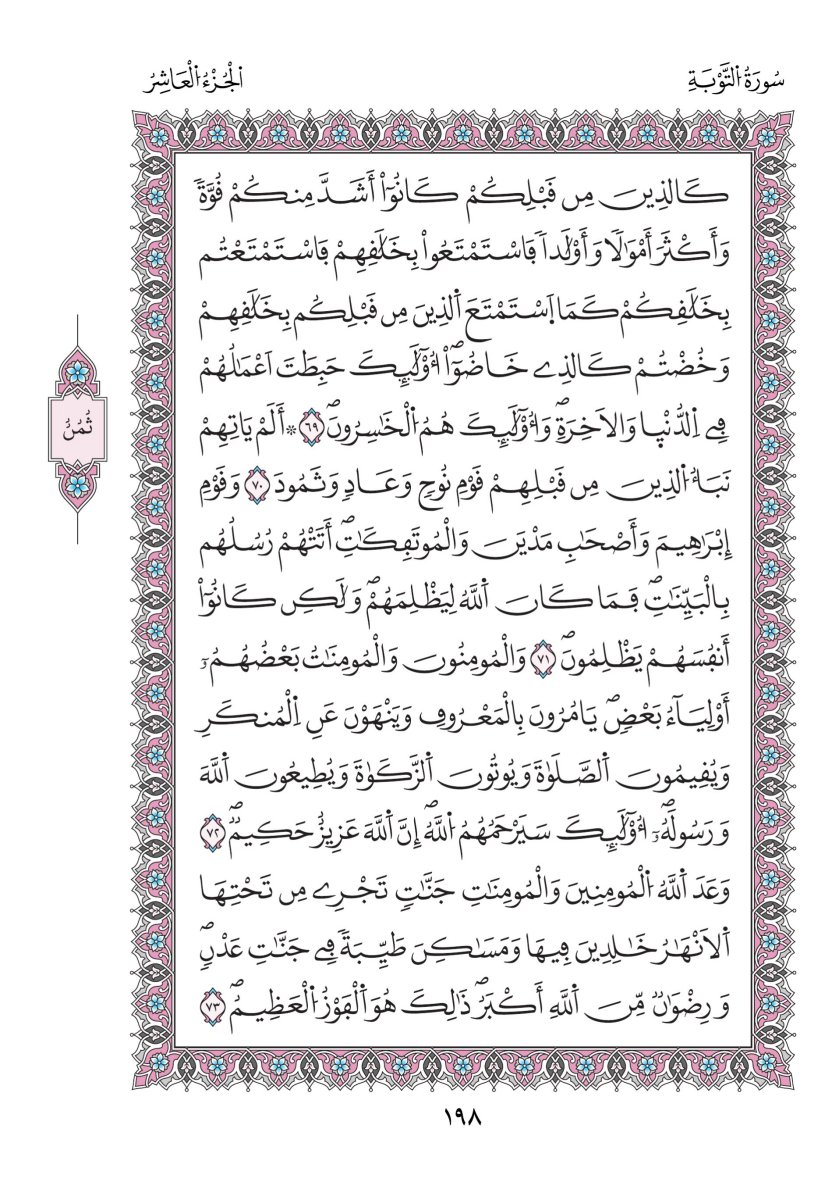 سُورَةُ التَّوْبَةِ
الْجُزْءُ الْعَاشِرُ
كَالذِينَ مِن قَبْلِكُمْ كَانُوٓاْ أَشَدَّ مِنكُمْ قُوَّةٗ
وَأَكْثَرَ أَمْوَٰلٗا وَأَوْلَٰداٗ فَاسْتَمْتَعُواْ بِخَلَٰقِهِمْ فَاسْتَمْتَعْتُم
بِخَلَٰقِكُمْ كَمَا اَسْتَمْتَعَ اَلذِينَ مِن قَبْلِكُم بِخَلَٰقِهِمْ
وَخُضْتُمْ كَالذِے خَاضُوٓاْۖ أُوْلَٰٓئِكَ حَبِطَتَ اَعْمَٰلُهُمْ
فِے اِلدُّنْيٰا وَالَاخِرَةِۖ وَأُوْلَٰٓئِكَ هُمُ اُلْخَٰسِرُونَۖ ٦٩ ۞ أَلَمْ يَاتِهِمْ
نَبَأُ اُلذِينَ مِن قَبْلِهِمْ قَوْمِ نُوحٖ وَعَادٖ وَثَمُودَ ٧٠ وَقَوْمِ
إِبْرَٰهِيمَ وَأَصْحَٰبِ مَدْيَنَ وَالْمُوتَفِكَٰتِۖ أَتَتْهُمْ رُسُلُهُم
بِالْبَيِّنَٰتِۖ فَمَا كَانَ اَللَّهُ لِيَظْلِمَهُمْۖ وَلَٰكِن كَانُوٓاْ
أَنفُسَهُمْ يَظْلِمُونَۖ ٧١ وَالْمُومِنُونَ وَالْمُومِنَٰتُ بَعْضُهُمُۥٓ
أَوْلِيَآءُ بَعْضٖۖ يَامُرُونَ بِالْمَعْرُوفِ وَيَنْهَوْنَ عَنِ اِلْمُنكَرِ
وَيُقِيمُونَ اَلصَّلَوٰةَ وَيُوتُونَ اَلزَّكَوٰةَ وَيُطِيعُونَ اَللَّهَ
وَرَسُولَهُۥٓۖ أُوْلَٰٓئِكَ سَيَرْحَمُهُمُ اُللَّهُۖ إِنَّ اَللَّهَ عَزِيزٌ حَكِيمٌۖ ٧٢
وَعَدَ اَللَّهُ اُلْمُومِنِينَ وَالْمُومِنَٰتِ جَنَّٰتٖ تَجْرِے مِن تَحْتِهَا
اَلَانْهَٰرُ خَٰلِدِينَ فِيهَا وَمَسَٰكِنَ طَيِّبَةٗ فِے جَنَّٰتِ عَدْنٖۖ
وَرِضْوَٰنٞ مِّنَ اَللَّهِ أَكْبَرُۖ ذَٰلِكَ هُوَ اَلْفَوْزُ اُلْعَظِيمُۖ ٧٣
ثُمُنُ
١٩٨